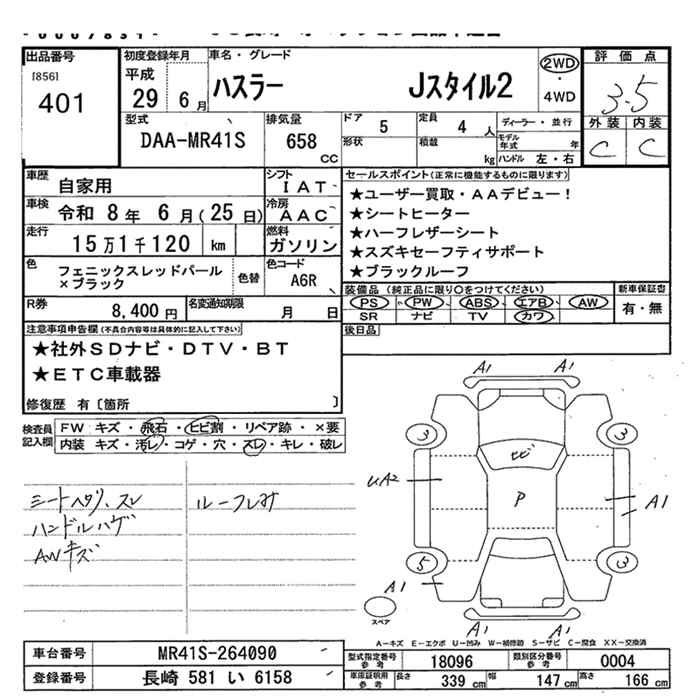 出品番号
[856]
401
初度登録年月
平成
29 6月
車名・グレード
ハスラー Jスタイル2
2WD
・
4WD
評価点
3.5
外装 内装
C C
型式
DAA-MR41S
排気量
658 CC
ドア 5
定員 4 人
ディーラー・並行
形状
積載 kg
モデル年式 年
ハンドル 左・右
車歴
自家用
シフト
IAT
車検
令和 8年 6月(25日)
冷房
AAC
走行
15万1千120 km
燃料
ガソリン
色
フェニックスレッドパール
×ブラック
色替
色コード
A6R
R券
8,400円
名変通知期限
月 日
セールスポイント(正常に機能するものに限ります)
★ユーザー買取・AAデビュー!
★シートヒーター
★ハーフレザーシート
★スズキセーフティサポート
★ブラックルーフ
装備品(純正品に限り○をつけてください)
PS PW ABS エアB AW
SR ナビ TV カワ
新車保証書
有・無
後日品
注意事項申告欄(不具合内容等は具体的に記入して下さい)
★社外SDナビ・DTV・BT
★ETC車載器
修復歴 有〔箇所 〕
検査員
記入欄
FW キズ・飛石・ヒビ割・リペア跡・×要
内装 キズ・汚レ・コゲ・穴・スレ・キレ・破レ
シートヘタリ、スレ
ハンドルハゲ
AWキズ
ルーフしみ
A1 A1
3 3
ヒビ
UA2
P
A1
5 3
A1
スペア
A1 A1
A―キズ E―エクボ U―凹み W―補修跡 S―サビ C―腐食 XX―交換済
車台番号 MR41S-264090
登録番号 長崎 581 い 6158
型式指定番号 参考 18096
類別区分番号 参考 0004
車庫証明用 参考 長さ 339 cm 幅 147 cm 高さ 166 cm